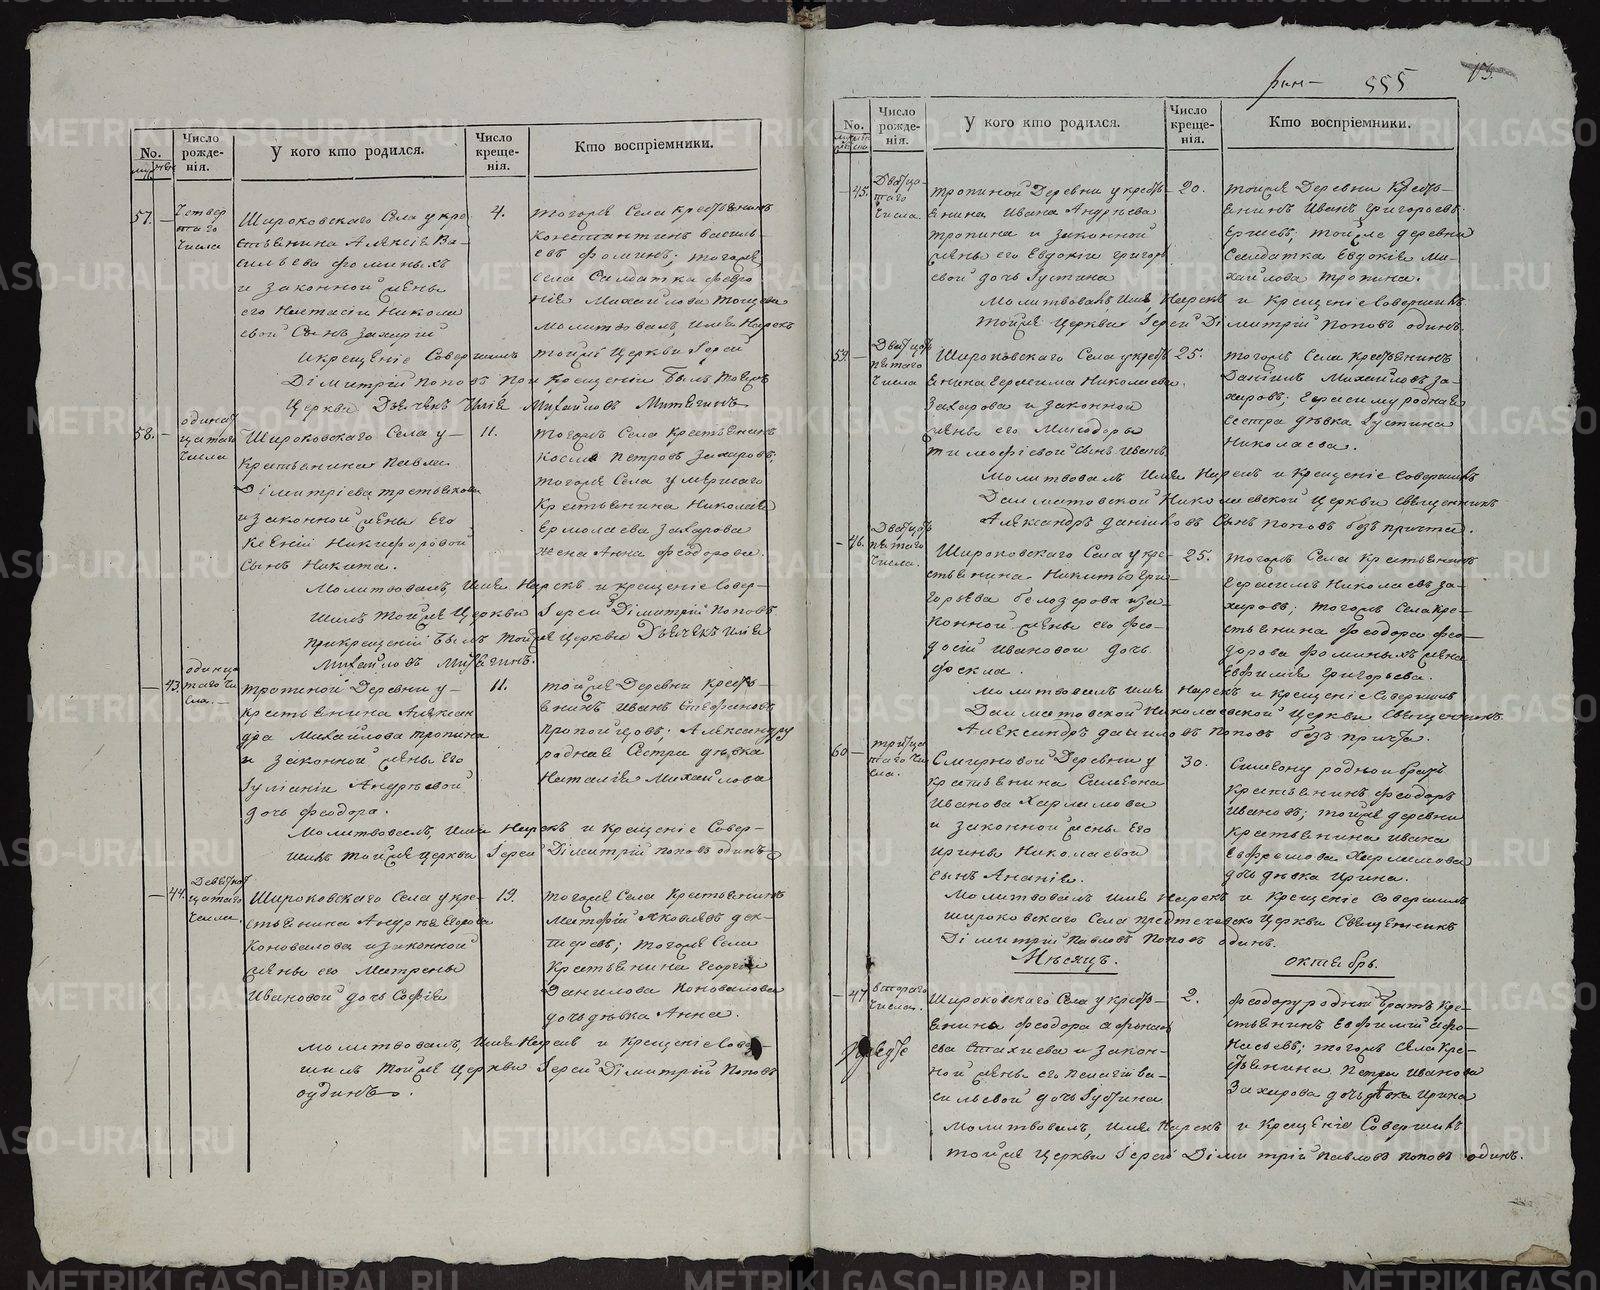 No.
Число
рожде-
нія.
У кого кто родился.
Число
креще-
нія.
Кто воспріемники.
57.
Четвер
таго
числа
Широковскаго Села у кре
стьянина Алексія Ва-
сильева Фоминыхъ
и законной жены
его Настасіи Никола
евой Сынъ Захарій
4.
тогоже Села крестьянинъ
Константинъ Василь-
евъ Фоминъ; тогоже
села Салдатка Февро
нія Михайлова
молитвовалъ, имя Нарекъ
и крещеніе Совершилъ тойже Церкви Іерей
Димитрій Поповъ при Крещеніи былъ тояже
Церкви Дьячекъ Илія Михайловъ Митягинъ
58.
одинат
цатаго
числа
Широковскаго Села у
крестьянина Павла
Димитріева третьякова
и законной жены Его
Ксеніи Никифоровой
Сынъ Никита.
11.
тогожъ Села Крестьянинъ
Косма Петровъ Захаровъ,
тогоже Села умершаго
Крестьянина Николая
Ермолаева Захарова
жена Анна Феодорова.
Молитвовалъ, имя Нарекъ и крещеніе Совер-
шилъ тойже Церкви Іерей Димитрій Поповъ
при крещеніи былъ тойже Церкви Дьячекъ Илія
Михайловъ Митягинъ.
43.
одинца
таго чи
сла.
тропиной Деревни у
крестьянина Алексан
дра Михайлова тропина
и законной жены Его
Іуліаніи Андреевой
дочь Феодора.
11.
тойже Деревни Кресть-
янинъ Иванъ Стефановъ
Александру
родная Сестра девка
Наталія Михайлова
Молитвовалъ, имя Нарекъ и Крещеніе Совер-
шилъ тойже церкви Іерей Димитрій Поповъ одинъ
44.
Девятнат
цатаго
числа.
Широковскаго Села у кре-
стьянина Андрея Егорова
Коновалова и законной
жены его Матрены
Ивановой дочь Софія
19.
тогоже Села Крестьянинъ
Матфій Яковлевъ
тогоже Села
Крестьянина Георгія
Данилова Коновалова
дочь девка Анна.
молитвовалъ, имя Нарекъ и Крещеніе Совер-
шилъ тойже Церкви Іерей Димитрій Поповъ
одинъ.
555
No.
Число
рожде-
нія.
У кого кто родился.
Число
креще-
нія.
Кто воспріемники.
45.
Двадца
таго
числа.
тропиной Деревни у кресть-
янина Ивана Андреева
тропина и законной
жены его Евдокіи Григорь
евой дочь Іустина
20.
тойже Деревни Кресть-
янинъ Иванъ Григорьевъ
тойже деревни
Салдатка Евдокія Ми-
хайлова тропина.
Молитвовалъ, имя Нарекъ и Крещеніе Совершилъ
тойже Церкви Іерей Димитрій Поповъ одинъ
59.
Двадцать
пятаго
числа
Широковскаго Села у кресть-
янина Герасима Николаева
Захарова и законной
жены его Минодоры
Тимофіевой Сынъ Иванъ
25.
тогожъ Села Крестьянинъ
Даніилъ Михайловъ За-
харовъ; Герасиму родная
сестра девка Іустина
Николаева.
Молитвовалъ Имя Нарекъ и Крещеніе Совершилъ
Далматовской Николаевской Церкви Священникъ
Александръ Даниловъ Сынъ Поповъ безъ причта.
46.
Двадцать
пятаго
числа.
Широковскаго Села у кре-
стьянина Никиты Гри-
горьева Белозерова и за-
конной жены его Фео-
досіи Ивановой дочь
Фекла.
25.
тогожъ Села Крестьянинъ
Герасимъ Николаевъ За-
харовъ; тогожъ Села Кре-
стьянина Феодора Фео-
дорова Фоминыхъ жена
Евфимія Григорьева.
Молитвовалъ имя Нарекъ и Крещеніе Совершилъ
Далматовской Николаевской Церкви Священникъ
Александръ Даниловъ Поповъ безъ причта.
60
тритца
таго чи
сла.
Смирновой Деревни у
крестьянина Симеона
Иванова Харламова
и законной жены Его
Ирины Николаевой
Сынъ Ананія.
30.
Симеону родной братъ
Крестьянинъ Феодоръ
Ивановъ; тойже деревни
крестьянина Ивана
Евфремова Харламова
дочь девка Ирина.
Молитвовалъ имя Нарекъ и Крещеніе Совершилъ
широковскаго Села предтечевско Церкви Священникъ
Димитрій Павловъ Поповъ одинъ.
Мѣсяцъ.
октябрь.
47
втораго
числа.
Широковскаго Села у кресть-
янина Феодора Афанась
ева Стахиева и закон-
ной жены его Пелагіи Ва-
сильевой дочь Іустина
2.
Феодору родной братъ Кре-
стьянинъ Евфимій Афо-
насьевъ; тогожъ Села Кре-
стьянина Петра Иванова
Захарова дочь девка Ирина
Молитвовалъ, имя Нарекъ и Крещеніе Совершилъ
тойже Церкви Іерей Димитрій Павловъ Поповъ одинъ.
METRIKI.GASO-URAL.RU